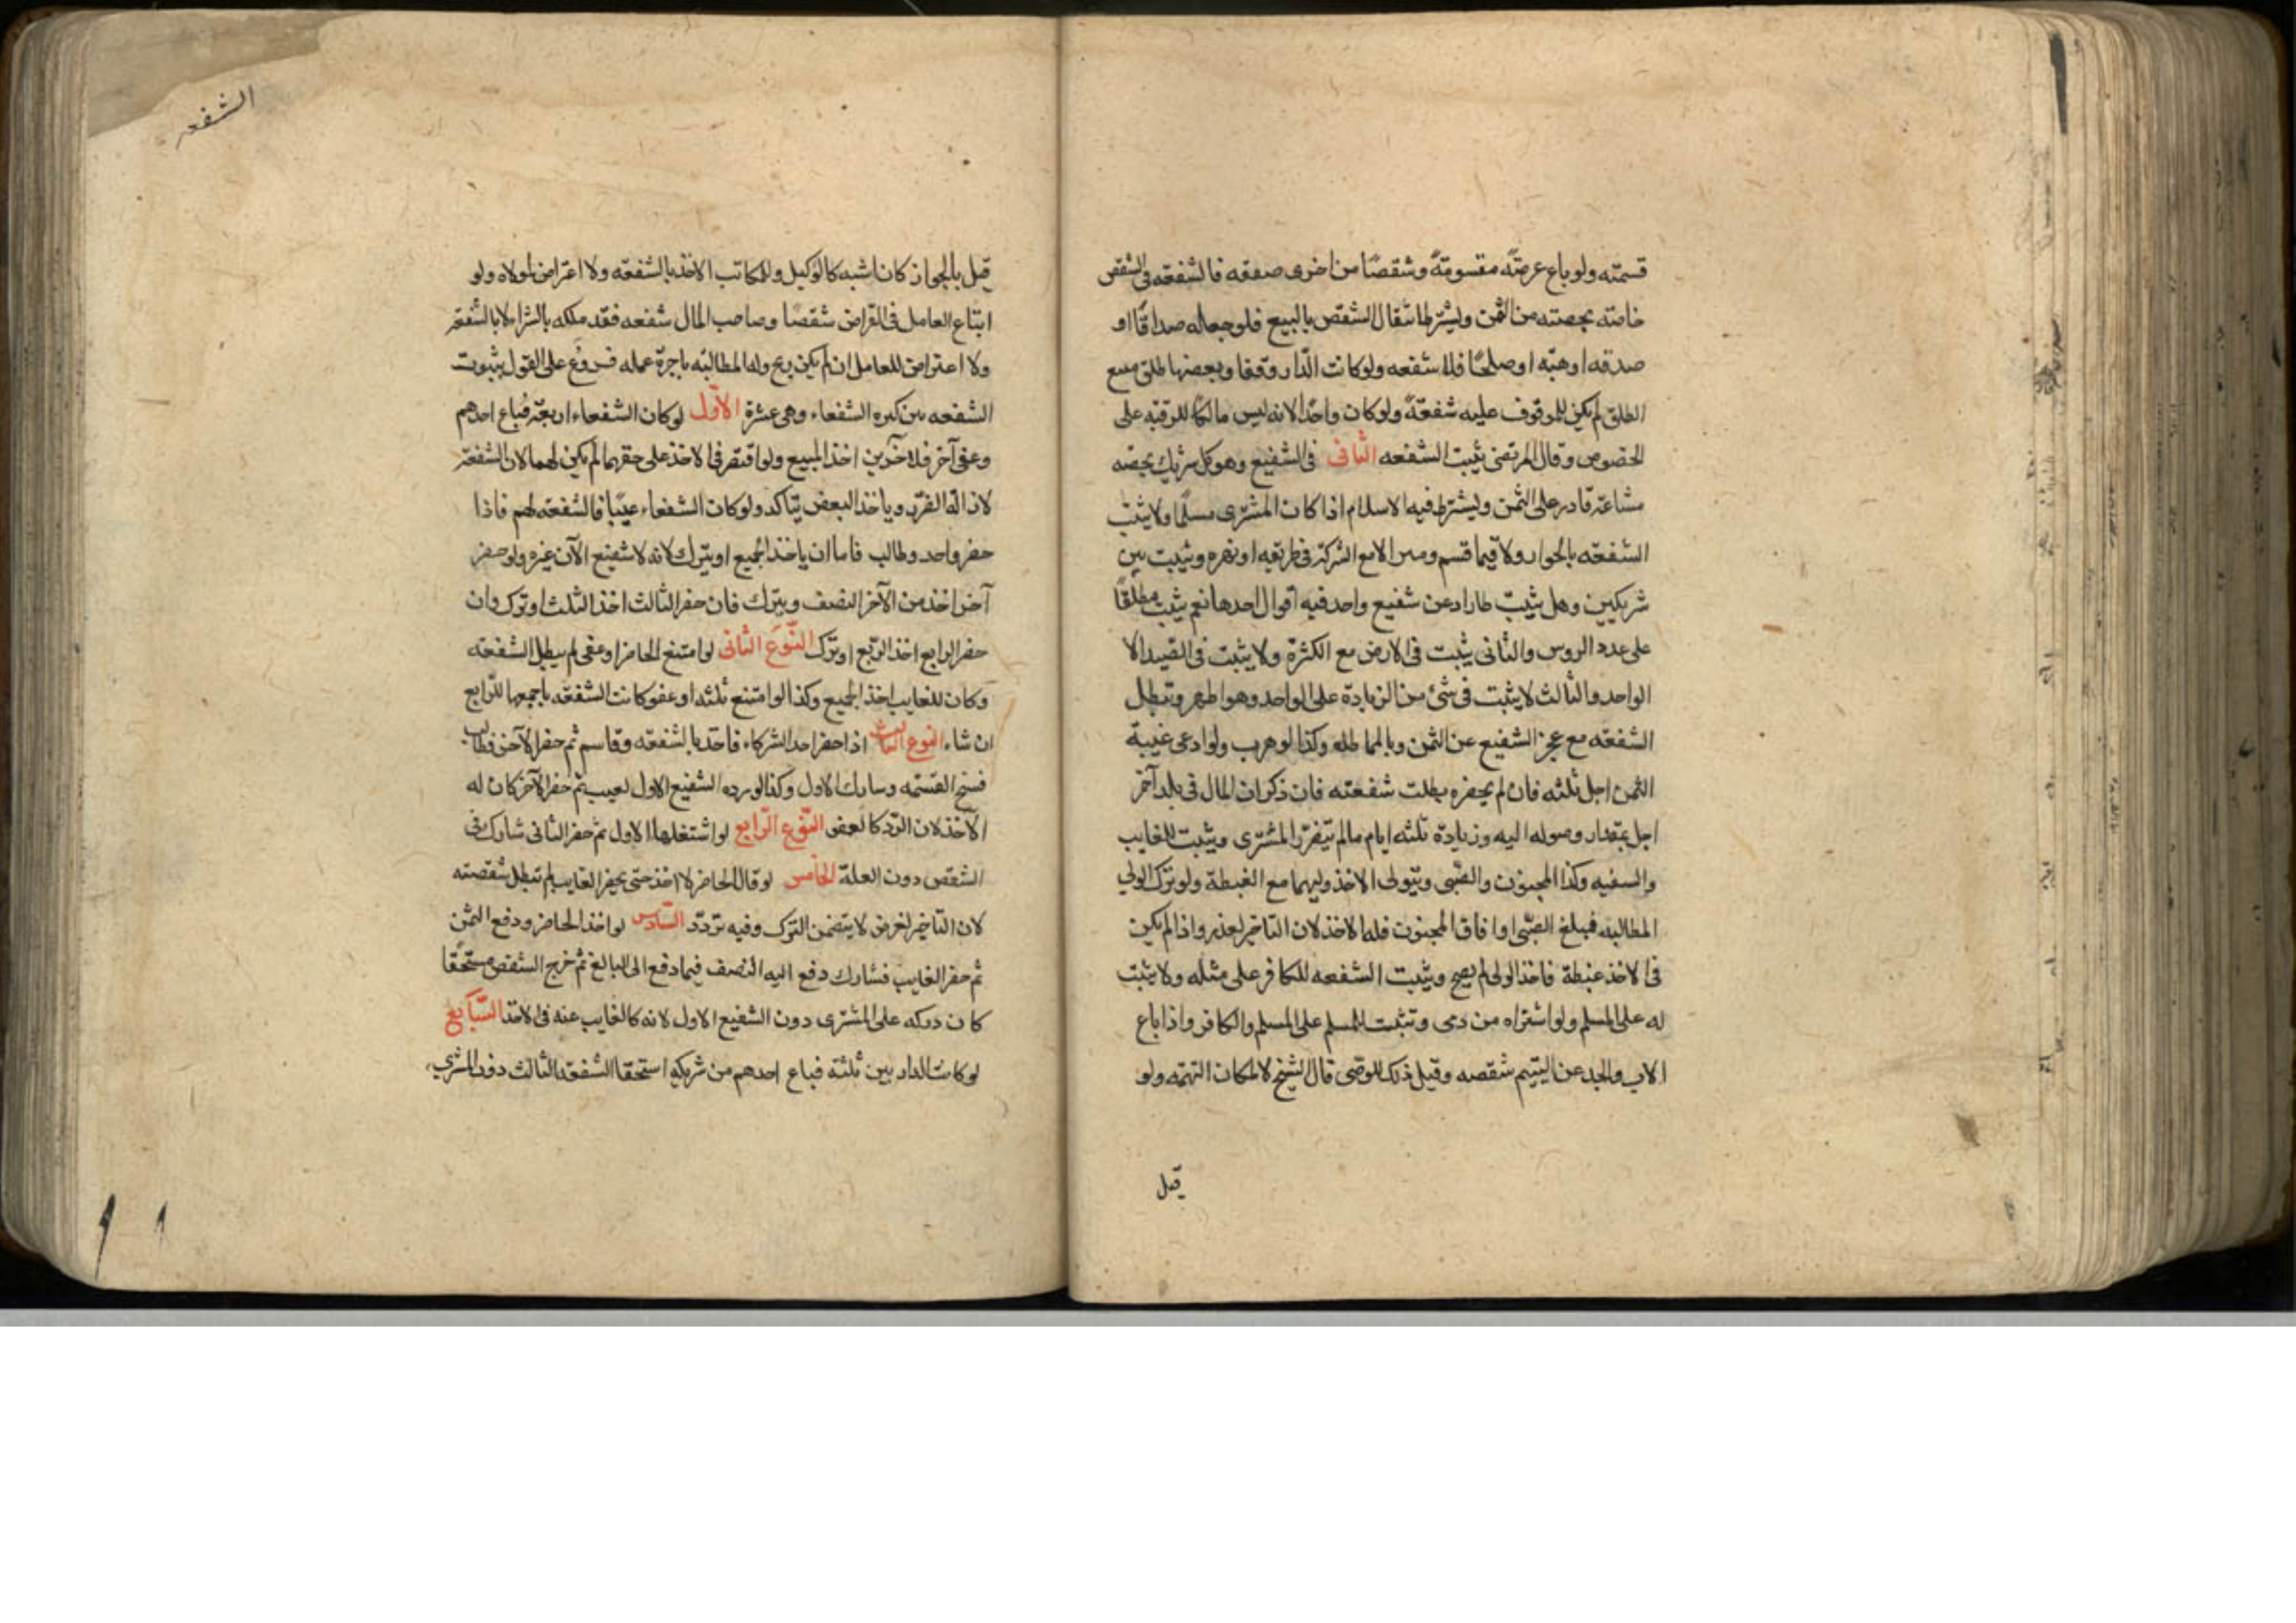 قسمته ولو باع عرصَةً مقسومةً وشقصًا من اخرى صفقه فالشفعه فى الشقص
خاصّته بحصته من الثمن ويشترط انتقال الشقص بالبيع فلو جعله صداقًا او
صدقه او هبّه او صلحًا فلا شفعه ولو كانت الدّار وقفا وبعضها طلق مبيع
الطلق لم يكن للموقوف عليه شفعةً ولو كان واحدًا لانه ليس مالكًا للرقبه على
الخصوص وقال المرتضى يثبت الشفعه الثانى فى الشفيع وهو كل شريك بحصّه
مشاعة قادر على الثمن ويشترط فيه الاسلام اذا كان المشترى مسلمًا ولا يثبت
الشفعه بالجوار ولا فيما قسم وميز الا مع الشركة فى طريقه او نهره ويثبت بين
شريكين وهل يثبت لما زاد عن شفيع واحد فيه اقوال احدها نعم يثبت مطلقًا
على عدد الروس والثانى يثبت فى الارض مع الكثرة ولا يثبت فى العبد الا
الواحد والثالث لا يثبت فى شئ من الزيادة على الواحد وهو اظهر وتبطل
الشفعه مع عجز الشفيع عن الثمن وبالمماطله وكذا لو هرب ولو ادعى غيبة
الثمن اجل ثلثه فان لم يحضره بطلت شفعته فان ذكر ان المال فى بلد آخر
اجل بمقدار وصوله اليه وزيادة ثلثه ايام مالم يتضرّر المشترى ويثبت للغايب
والسفيه وكذا المجنون والصّبى ويتولى الاخذ وليهما مع الغبطة ولو ترك الولي
المطالبه فبلغ الصّبى او افاق المجنون فله الاخذ لان التاخير لعذر واذا لم يكن
فى الاخذ غبطة فاخذ الولى لم يصح ويثبت الشفعه للكافر على مثله ولا يثبت
له على المسلم ولو اشتراه من ذمى وتثبت للمسلم على المسلم والكافر واذا باع
الاب والجد عن اليتيم شقصه وقيل ذلك للوصى قال الشيخ لا لمكان التهمه ولو
قيل
الشفعه
قيل بالجواز كان اشبه كالوكيل وللمكاتب الاخذ بالشفعه ولا اعتراض لمولاه ولو
ابتاع العامل فى القراض شقصًا وصاحب المال شفعه فقد ملكه بالشرا لا بالشفعة
ولا اعتراض للعامل ان لم يكن ربح وله المطالبه باجرة عمله فروع على القول بثبوت
الشفعه مع كثره الشفعاء وهى عشرة الاوّل لو كان الشفعاء اربعة فباع احدهم
وعفى آخر فللآخرين اخذ المبيع ولو اقتصر فى الاخذ على حقهما لم يكن لهما لان الشفعة
لازالة الضرر وباخذ البعض يتاكد ولو كان الشفعاء غيّبًا فالشفعه لهم فاذا
حضر واحد وطالب فاما ان ياخذ الجميع او يترك لانه لا شفيع الآن غيره ولو حضر
آخر اخذ من الآخر النصف ويترك فان حضر الثالث اخذ الثلث او ترك وان
حضر الرابع اخذ الربّع او ترك النّوع الثانى لو امتنع الحاضر او عفى لم يبطل الشفعه
وكان للغايب اخذ الجميع وكذا لو امتنع ثلثه او عفو كانت الشفعه باجمعها للرّابع
ان شاء النوع الثالث اذا حضر احد الشركاء فاخذ بالشفعه وقاسم ثم حضر الآخر فطالب
فسخ القسمه وشارك الاول وكذا لو رده الشفيع الاول لعيب ثم حضر الآخر كان له
الآخذ لان الرّد كالعفو النّوع الرّابع لو اشتغلها الاول ثم حضر الثانى شاركه فى
الشقص دون العلة الخامس لو قال الحاضر لا اخذ حتى يحضر الغايب لم تبطل شفعته
لان التاخير لغرض لا يتضمن الترك وفيه تردّد السّادس لو اخذ الحاضر ودفع الثمن
ثم حضر الغايب فشارك دفع اليه النصف فيما دفع الى البايع ثم خرج الشقص مستحقًا
كان دركه على المشترى دون الشفيع الاول لانه كالغايب عنه فى الاخذ السّابع
لو كانت الدار بين ثلثة فباع احدهم من شريكه استحقا الشفعه الثالث دون المشرى